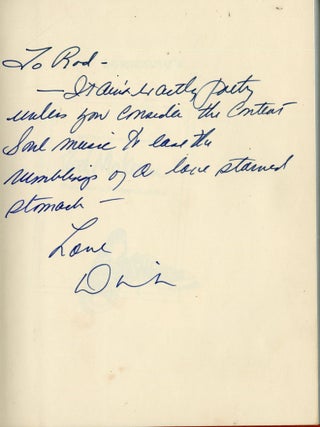 To Rod -
— It ain't exactly poetry
unless you consider the content
Soul music to ease the
rumblings of a love starved
stomach —
Love